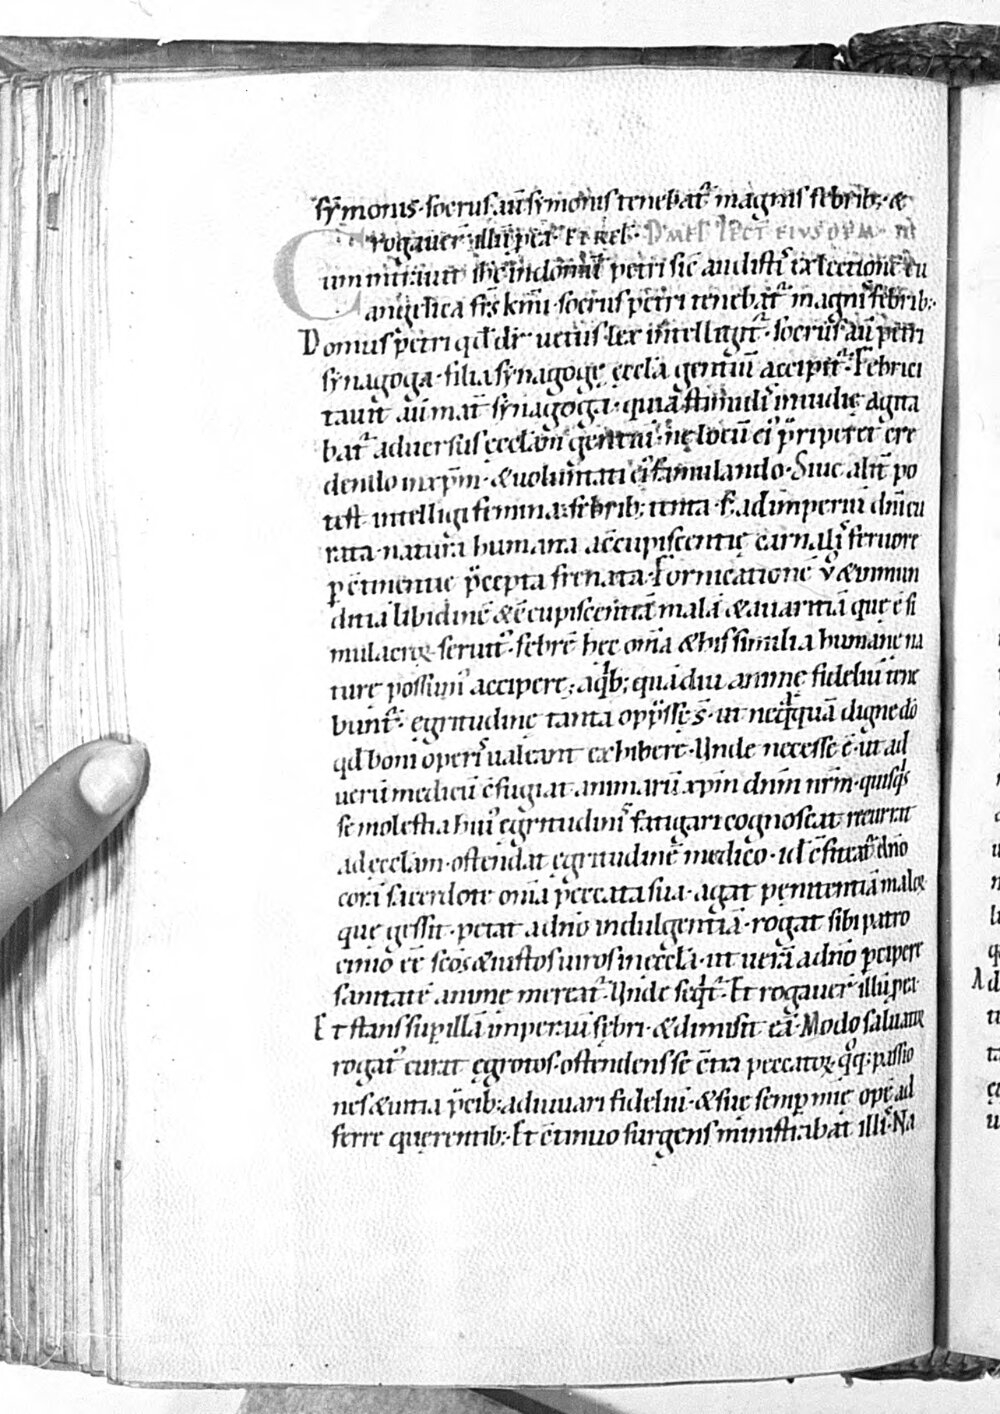 symonis. socrus aū symonis tenebat᷒ magnis febrib; &
rogauer̄ illū p ea. ET REL.
Cum intrauit ihc̄ in domū petri sic audistis ex lectione eu
angelica frs̄ km̄i. socrus petri tenebat᷒ magnis febrib;.
Domus petri qd̄ dr̄ uetus lex intelligit᷒. socrus aū petri
synagoga. filia synagogę ęccl̄a gentiū accipit᷒. Febrici
tauit aū mat̄ synagoga. quia stimulis inuidię agita
bat᷒ aduersus ęccl̄am gentiū. ne locū ei᷒ p̄riperet cre
dendo in xp̄m. & uoluntati ei᷒ famulando. Siue alit̄ po
test intelligi femina febrib; tenta & ad imperiū dn̄i cu
rata. natura humana a c̄cupiscentię carnalis feruore
p c̄tinentię p̄cepta frenata. Fornicationē v̊ & inmun
ditiā libidinē & c̄cupiscentiā malā & auaritiā quę ē si
mulacroꝝ seruit᷒. febrē hec om̄ia & his similia humanę na
turę possum᷒ accipere; a qb; quādiu animę fideliū tene
bunt᷒. ęgritudine tanta opp̄sse s̄. ut nequāquā digne dō
qd̄ boni operis ualeant exhibere. Unde necesse ē ut ad
uerū medicū c̄fugiat animarū xp̄m dn̄m nr̄m. quisqs
se molestia hui᷒ ęgritudinis fatigari cognoscat recurrat
ad ęccl̄am. ostendat ęgritudinē medico. id ē c̄fiteat᷒ dn̄o
corā sacerdote om̄ia peccata sua. agat penitentiā maloꝝ
que gessit. petat a dn̄o indulgentiā. rogat sibi patro
cinio ēē scōs & iustos uiros in ęccl̄a. ut uerā a dn̄o pcipere
sanitatē animę mereat᷒. Unde seqt᷒. Et rogauer̄ illū p ea.
Et stans sup illā imperauit febri. & dimisit eā. Modo saluator
rogat᷒ curat ęgrotos. ostendens se c̄tra peccatoꝝ qoq; passio
nes & uitia p̄cib; adiuuari fideliū. & suę semp mię opē ad
ferre querentib;. Et c̄tinuo surgens ministrabat illis. Na